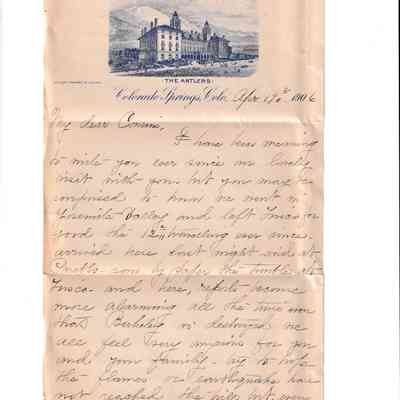 "THE ANTLERS"
Colorado Springs, Colo. Apr. 19th 1906
My dear Cousin,
I have been meaning
to write you ever since our lovely
visit with you, but you may be
surprised to know we went in
Yosemite Valley and left
good the 12th travelling ever since
arrived here last night and at
Pueblo saw by paper the trouble at
Frisco and here, reports become
more alarming all the time now
that Berkeley is destroyed we
all feel very anxious for you
and your family - try to hope
the flames or earthquake have
not reached the hills but even